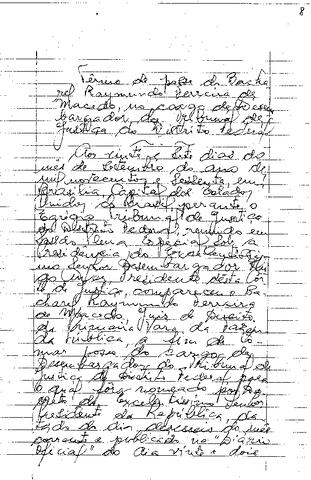 8
Termo de posse do Bacha
rel Raymundo Ferreira de
Macedo, no cargo de Desem
bargador do Tribunal de
Justiça do Distrito Federal
Aos vinte e sete dias do
mês de Setembro, do ano de
mil novecentos e sessenta, em
Brasília Capital dos Estados
Unidos do Brasil, perante o
Egrégio Tribunal de Justiça
do Distrito Federal, reunido em
sessão Especial sob a
Presidencia do Excelentíssi
mo Senhor Desembargador Hu
go Presidente desta Côr
te de Justiça, compareceu o Ba
charel Raymundo Ferreira
de Macedo, Juiz de Direito
da Primeira Vara da Fazen
da Pública, a fim de to
mar posse do cargo de
Desembargador do Tribunal de
Justiça do Distrito Federal, para
o qual fôra nomeado por De
creto do Excelentíssimo Senhor
Presidente da República, da
tado do dia dezesseis do mês
corrente e publicado no "Diário
Oficial" do dia vinte e dois